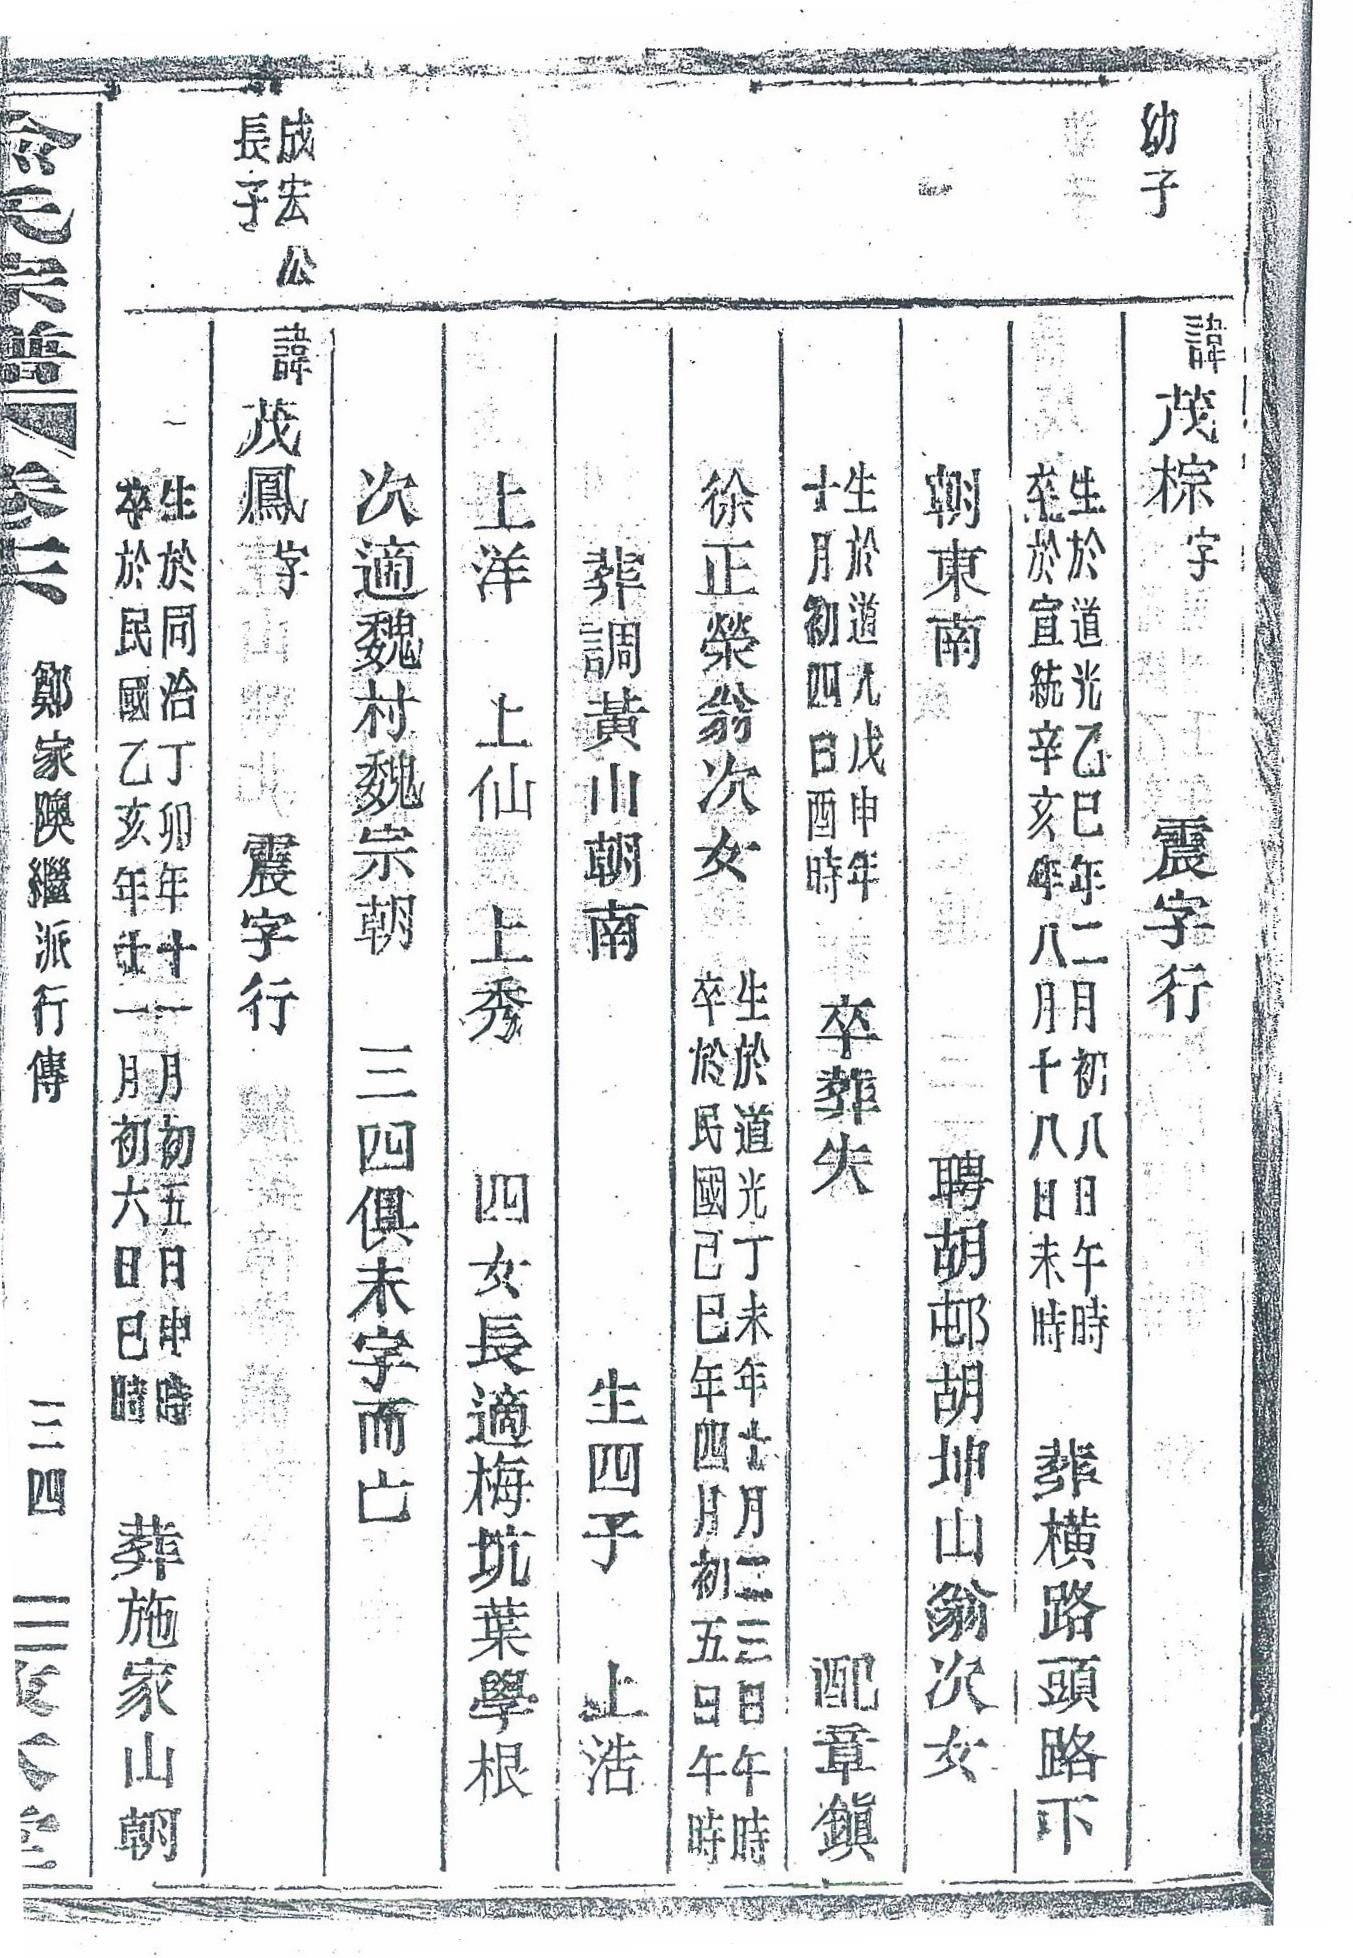 幼子
諱茂棕字 震字行
生於道光乙巳年二月初八日午時
卒於宣統辛亥年八月十八日未時
葬橫路頭路下
朝東南 聘胡邨胡坤山翁次女
生於道光戊申年
十月初四日酉時
卒葬失 配章鎮
徐正榮翁次女
生於道光丁未年十月二三日午時
卒於民國己巳年四月初五日午時
葬調黃山朝南 生四子 上浩
上洋 上仙 上秀 四女長適梅坑葉學根
次適魏村魏宗朝 三四俱未字而亡
成宏公
長子
諱茂鳳字 震字行
生於同治丁卯年十一月初五日申時
卒於民國乙亥年十一月初六日巳時
葬施家山朝
俞氏宗譜 卷六 鄭家陝繼派行傳 三四